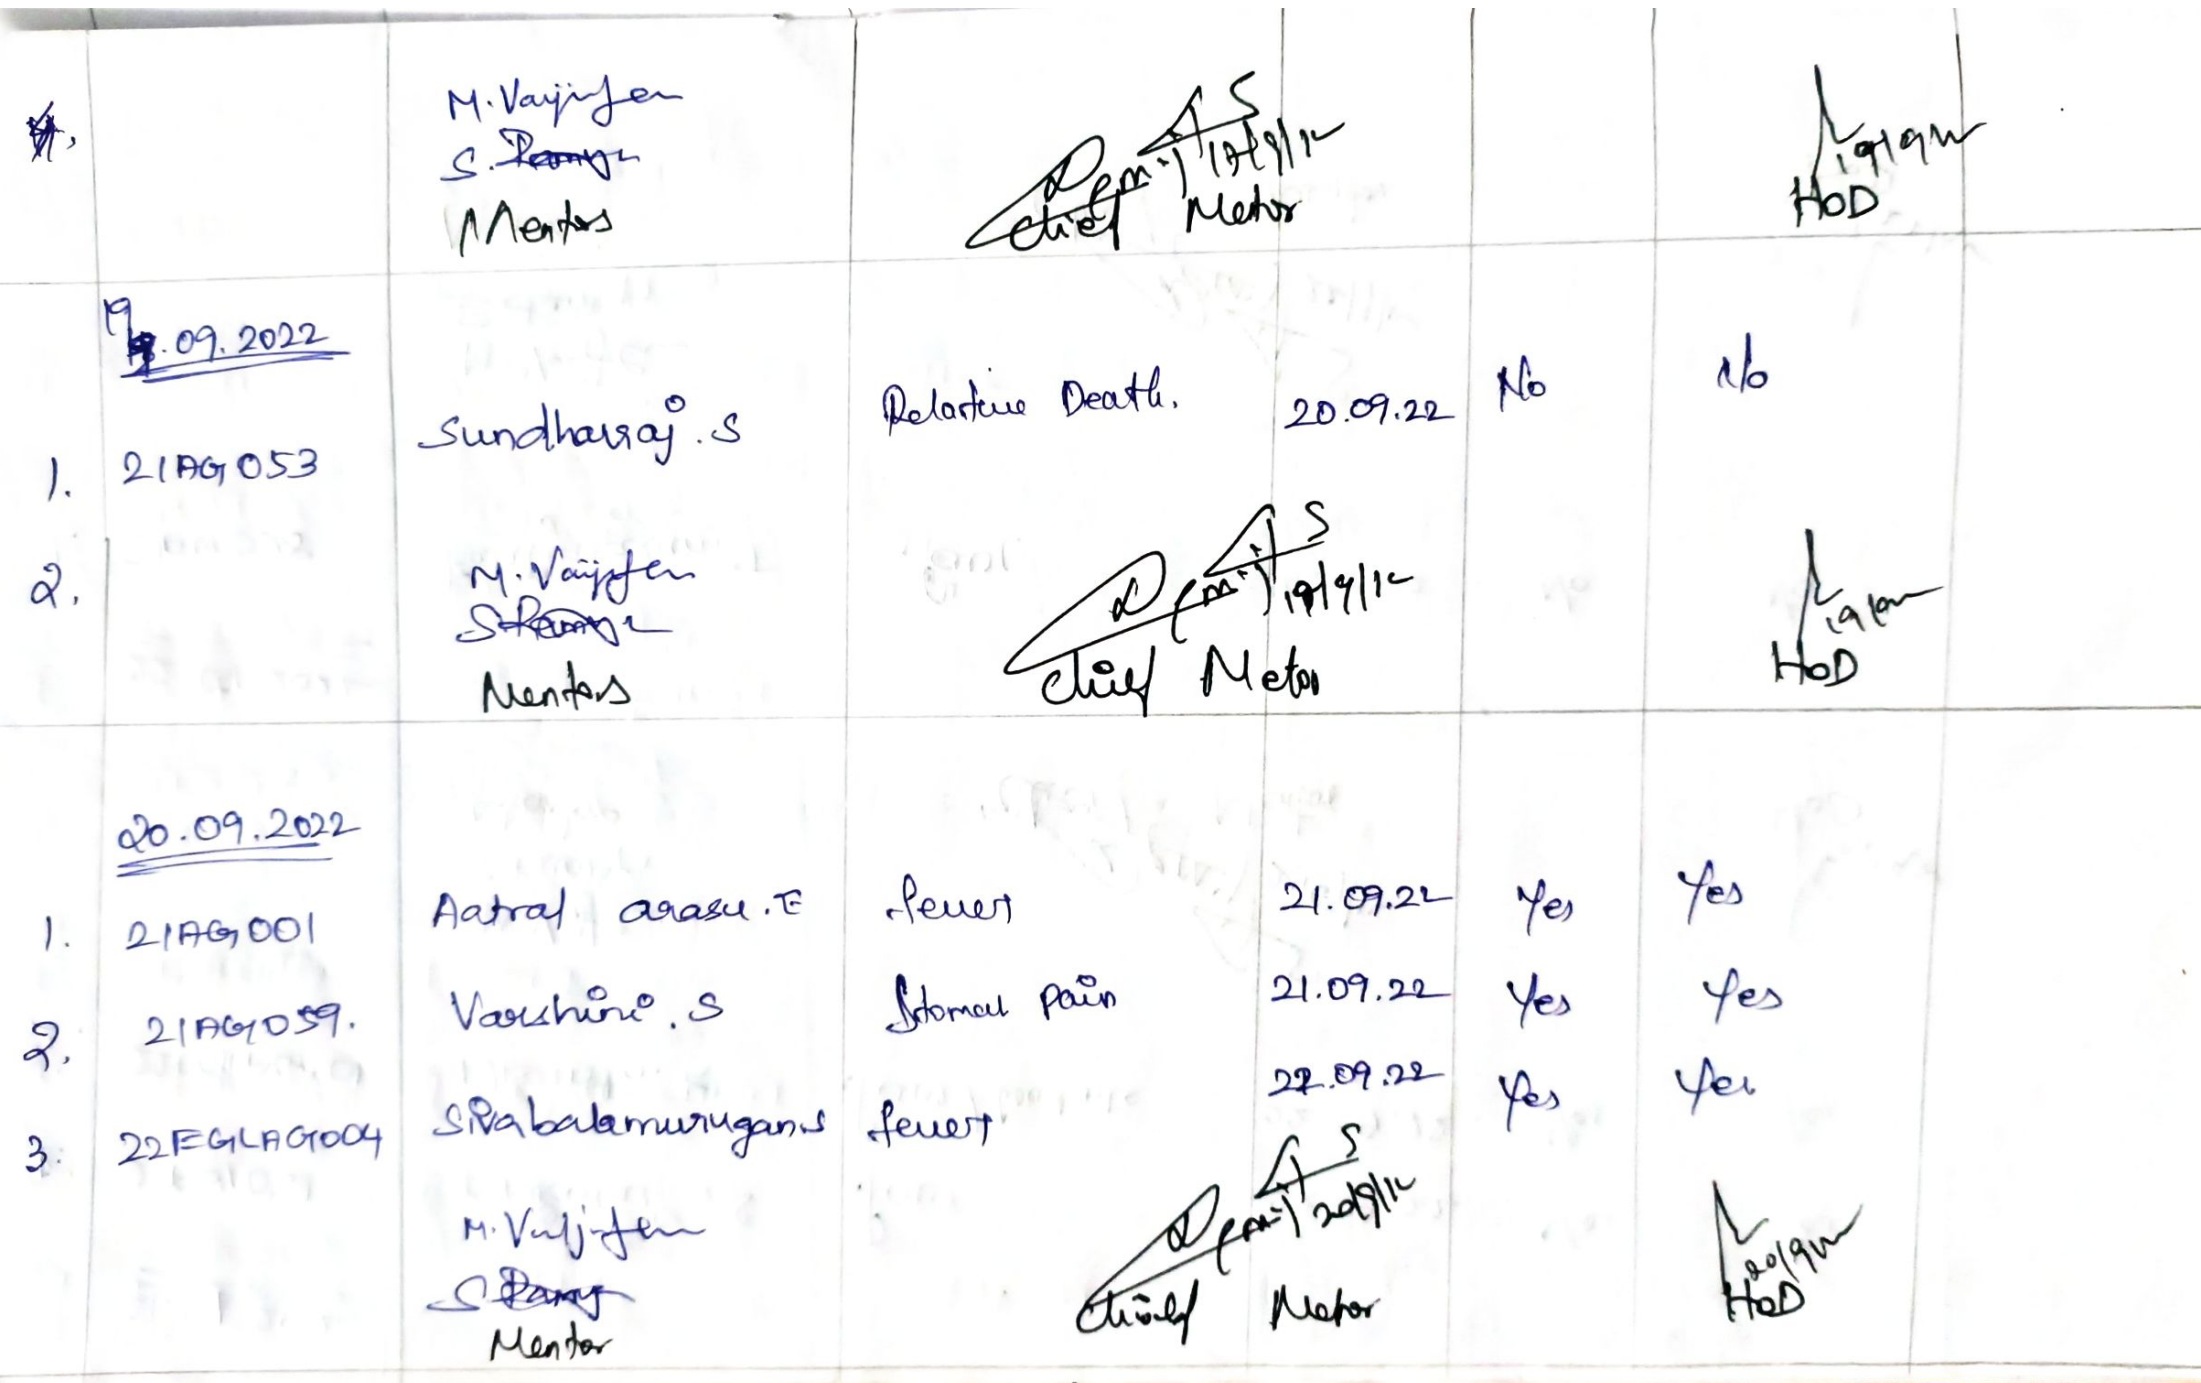 M. Vaijifen
S. Ramya
Mentors
S
17/9/22
Chief Mentor
19/9/22
HOD
19.09.2022
1. 21AG053 Sundharraj. S Relative Death. 20.09.22 No No
2.
M. Vaijifen
S. Ramya
Mentors
S
19/9/22
Chief Metor
HOD
20.09.2022
1. 21AG001 Aatral arasu. E fever 21.09.22 Yes Yes
2. 21AG059. Varshini. S Stomac Pain 21.09.22 Yes Yes
3. 22EGLAG004 Sivabalamurugan.S fever 22.09.22 Yes Yes
S
20/9/22
Mentor
Chief Metor
20/9/22
HOD